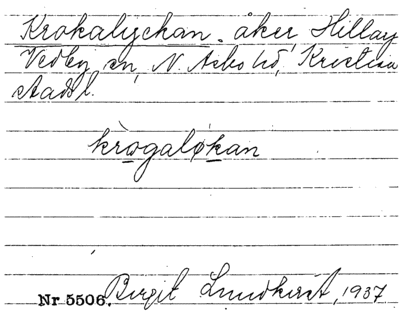 Krokalyckan. åker, Hillarp
Vedby sn, N. Åsbo hd, Kristian
stads l.
krògaløkan
Nr 5506. Birgit Lundkvist, 1937